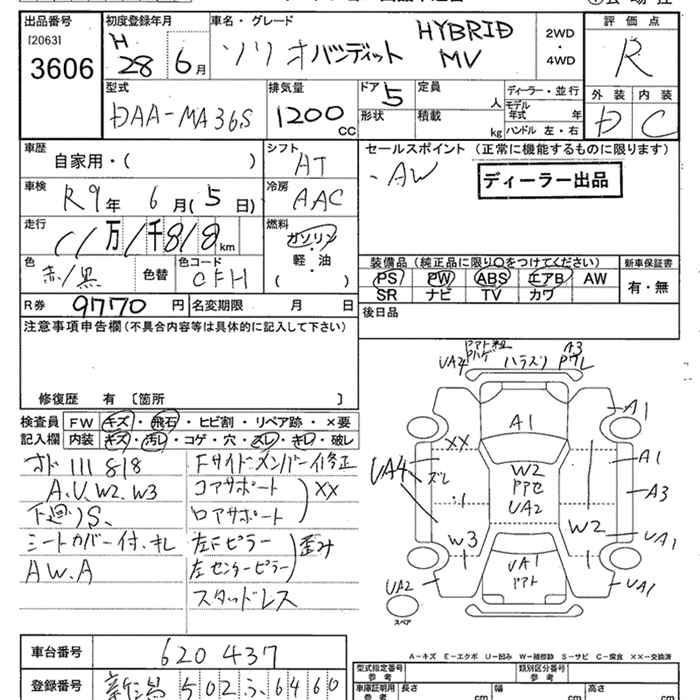 出品番号
[2063]
3606
初度登録年月
H
28 6月
車名・グレード
ソリオバンディット HYBRID MV
2WD
・
4WD
評価点
R
型式
DAA-MA36S
排気量
1200 CC
ドア 5
形状
定員 人
積載 kg
ディーラー・並行
モデル年式 年
ハンドル 左・右
外装 内装
D C
車歴
自家用・( )
シフト
AT
セールスポイント (正常に機能するものに限ります)
・AW
ディーラー出品
車検
R9年 6月(5日)
冷房
AAC
走行
11万1千818km
燃料
ガソリン
・
軽・油
( )
色
赤/黒 色替
色コード
CFH
装備品(純正品に限り○をつけてください)
PS PW ABS エアB AW
SR ナビ TV カワ
新車保証書
有・無
R券 9770円
名変期限 月 日
後日品
注意事項申告欄(不具合内容等は具体的に記入して下さい)
修復歴 有〔箇所 〕
検査員
記入欄
FW キズ・飛石・ヒビ割・リペア跡・×要
内装 キズ・汚レ・コゲ・穴・スレ・キレ・破レ
オド111818
A.U.W2.W3
下廻)S.
シートカバー付.オレ
AW.A
Fサイドメンバー修正
コアサポート
ロアサポート
XX
左Fピラー
左センターピラー
歪み
スタッドレス
UA4
ハラスリ
A3
ワレ
A1
A1
XX
A1
UA4
ズレ
W2
UA2
A3
W3
W2
UA1
UA1
UA2
UA1
スペア
A-キズ E-エクボ U-凹み W-補修跡 S-サビ C-腐食 XX-交換済
車台番号
620437
登録番号
新潟502ふ6460
型式指定番号
参考
類別区分番号
参考
車庫証明用
参考
長さ cm
幅 cm
高さ cm